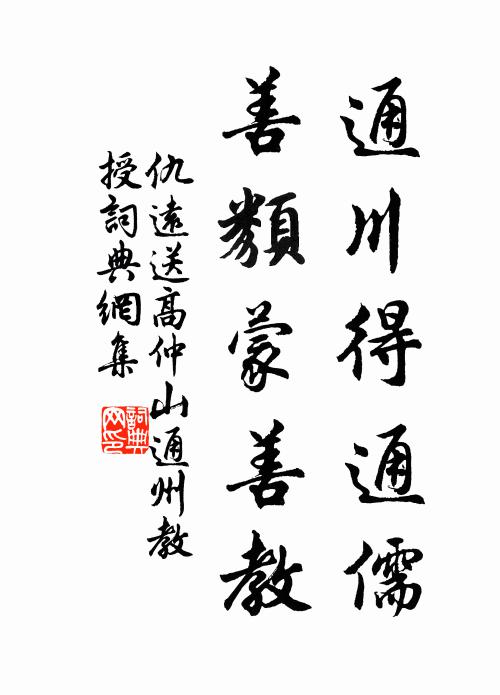 通川得通儒
善類蒙善教
仇遠送高仲山通州教
授詞典網集
詞典
网印